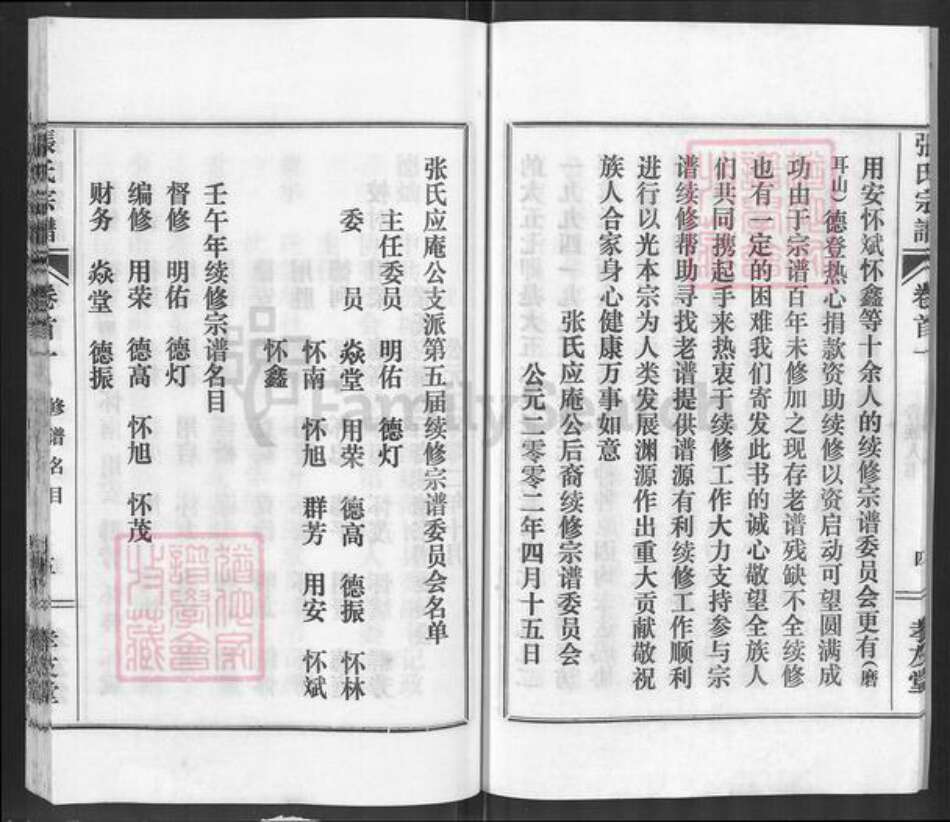 張氏宗譜
卷首一
四
孝友堂
用安怀斌怀鑫等十余人的续修宗谱委员会更有(磨
耳山)德登热心捐款资助续修以资启动可望圆满成
功由于宗谱百年未修加之现存老谱残缺不全续修
也有一定的困难我们寄发此书的诚心敬望全族人
们共同携起手来热衷于续修工作大力支持参与宗
谱续修帮助寻找老谱提供谱源有利续修工作顺利
进行以光本宗为人类发展渊源作出重大贡献敬祝
族人合家身心健康万事如意
张氏应庵公后裔续修宗谱委员会
公元二零零二年四月十五日
张氏应庵公支派第五届续修宗谱委员会名单
主任委员 明佑 德灯
委员 焱堂 用荣 德高 德振 怀林
怀南 怀旭 群芳 用安 怀斌
怀鑫
壬午年续修宗谱名目
督修 明佑 德灯
编修 用荣 德高 怀旭 怀茂
财务 焱堂 德振
張氏宗譜
卷首一
修谱名目
五
孝友堂
FamilySearch